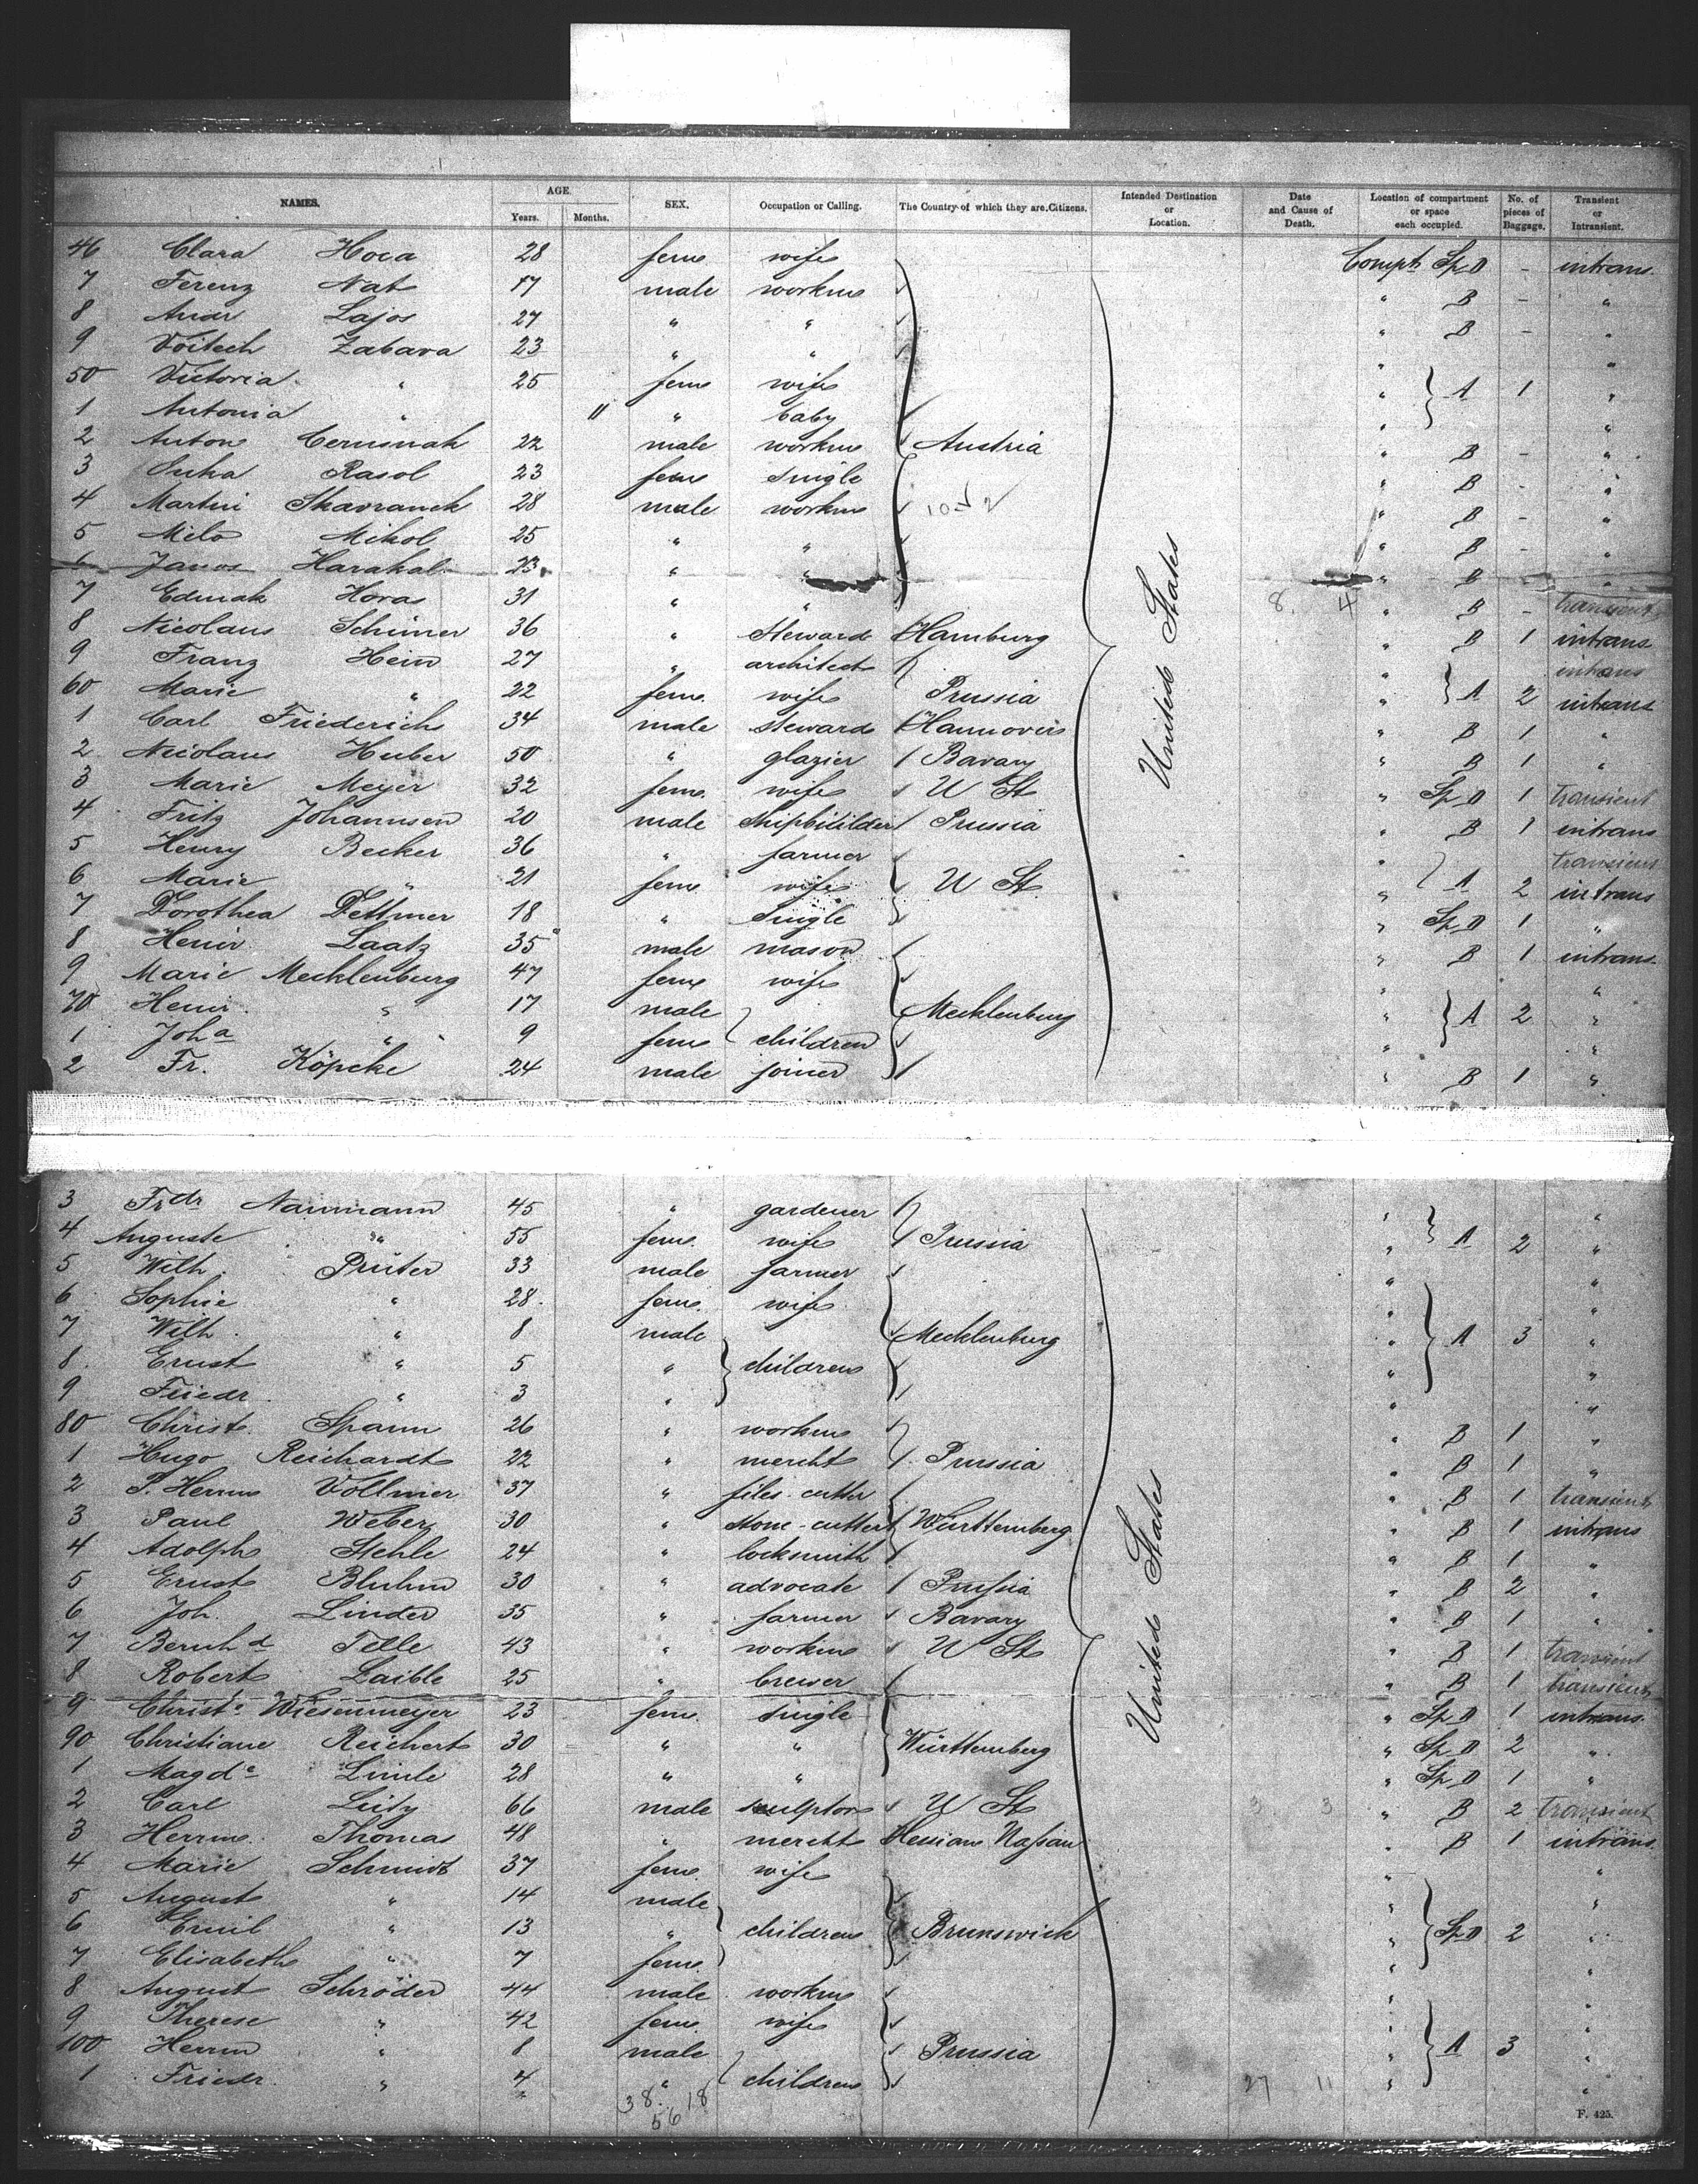 NAMES. AGE. Years. Months. SEX. Occupation or Calling. The Country of which they are Citizens. Intended Destination or Location. Date and Cause of Death. Location of compartment or space each occupied. No. of pieces of Baggage. Transient or Intransient.
46 Clara Hoca 28 fem. wife Compt. Sp. D - intrans.
7 Ferenz Nat 17 male workm " B - "
8 Andr Lajos 27 " " " B - "
9 Voitech Zabava 23 " " " "
50 Victoria " 25 fem wife " A 1 "
1 Antonia " 11 " baby " "
2 Anton Cernsnak 22 male workm Austria " B - "
3 Suka Rasol 23 fem single " B - "
4 Martin Skavranek 28 male workm " B - "
5 Milo Mikol 25 " " " B - "
6 Janos Harakal 23 " " " B "
7 Edmak Horas 31 " " 8. 4 " B - transient
8 Nicolaus Schimer 36 " Steward Hamburg " B 1 intrans
9 Franz Hein 27 " architect " intrans
60 Marie " 22 fem. wife Prussia " A 2 intrans
1 Carl Friederich 34 male steward Hannover " B 1 "
2 Nicolaus Huber 50 " glazier Bavary " B 1 "
3 Marie Meyer 32 fem. wife U St " Sp. D 1 transient
4 Fritz Johannsen 20 male Shipbiilder Prussia " B 1 intrans
5 Henry Becker 36 " farmer " transient
6 Marie " 21 fem wife U St. " A 2 intrans
7 Dorothea Dettmer 18 " single " Sp. D 1 "
8 Heinr. Laatz 35 male mason " B 1 intrans
9 Marie Mecklenburg 47 fem wife " "
70 Heinr. " 17 male Mecklenburg " A 2 "
1 Joha " 9 fem children " "
2 Fr. Köpcke 24 male joiner " B 1 "
United States
3 Frdr Naumann 45 " gardener " "
4 Auguste " 55 fem. wife Prussia " A 2 "
5 Wilh. Prüter 33 male farmer " "
6 Sophie " 28. fem. wife " "
7 Wilh. " 8 male Mecklenburg " A 3 "
8. Ernst " 5 " children " "
9 Friedr. " 3 " " "
80 Christ. Spann 26 " workm " B 1 "
1 Hugo Reichardt 22 " mercht Prussia " B 1 "
2 P. Herm Vollmer 37 " files-cutter " B 1 transient
3 Paul Weber 30 " stone-cutter Württemberg " B 1 intrans
4 Adolph Stehle 24 " locksmith " B 1 "
5 Ernst Bluhm 30 " advocate Prussia " B 2 "
6 Joh. Linder 35 " farmer Bavary " B 1 "
7 Bernhd Telle 43 " workm U St " B 1 transient
8 Robert Laible 25 " brewer " B 1 transient
9 Christe Wiesenmeyer 23 fem. single " Sp. D 1 intrans.
90 Christiane Reichert 30 " " Württemberg " Sp. D 2 "
1 Magde Linde 28 " " " Sp. D 1 "
2 Carl 66 male sculptor U St 3 3 " B 2 transient
3 Herrm. Thomas 48 " mercht Hessian Nassau " B 1 intrans.
4 Marie Schmidt 37 fem. wife " "
5 August " 14 male " "
6 Emil " 13 " children Brunswick " Sp. D 2 "
7 Elisabeth " 7 fem. " "
8 August Schröder 44 male workm " "
9 Therese " 42 fem. wife " "
100 Herm " 8 male Prussia " A 3 "
1 Friedr. " 4 " children 27 11 " "
United States
38. 18
56
F. 425.